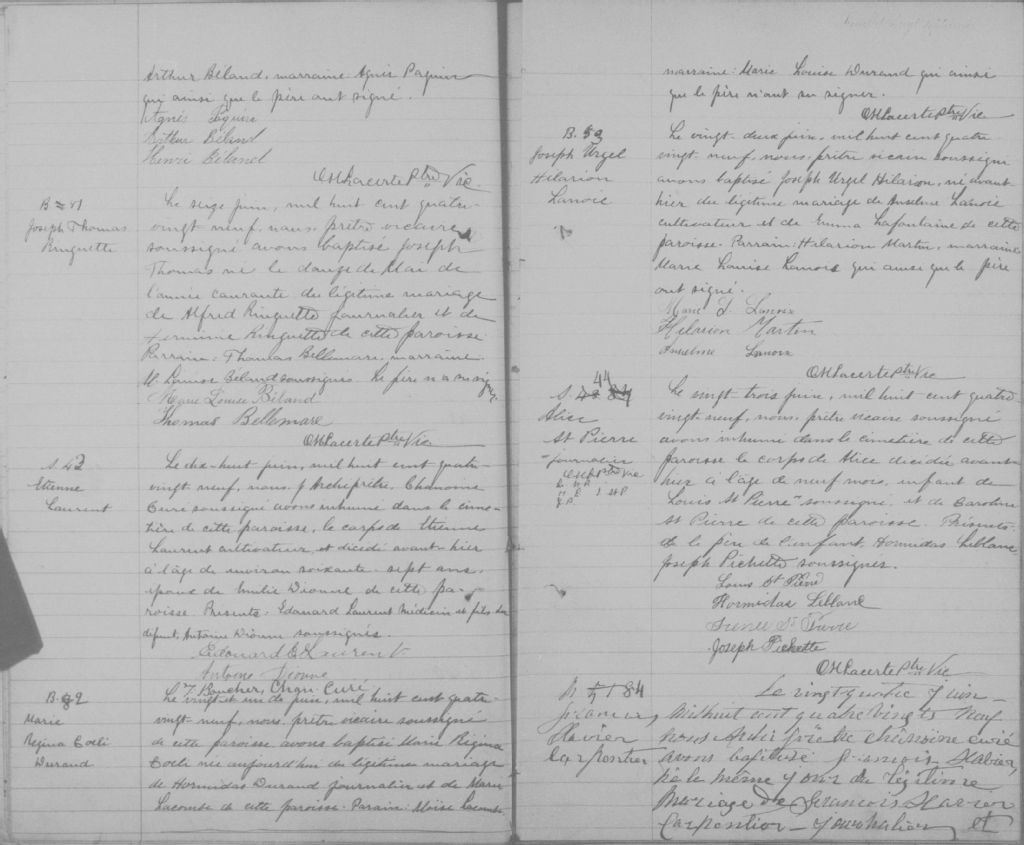 Arthur Béland, marraine Agnès Paquin
qui ainsi que le père ont signé.
Agnès
Arthur Béland
Henri Béland
OH Lacerte Ptre Vic
B 81
Joseph Thomas
Ringuette
Le seize juin, mil huit cent quatre-
vingt neuf, nous, prêtre vicaire
soussigné avons baptisé Joseph
Thomas né le douze de Mai de
l'année courante du légitime mariage
de Alfred Ringuette journalier et de
Ringuette de cette paroisse.
Parrain: Thomas Bellemare, marraine
M. Louise Béland soussignés. Le père n'a su signer
Marie Louise Béland
Thomas Bellemare
OH Lacerte Ptre Vic
S. 43
Etienne
Laurent
Le dix-huit juin, mil huit cent quatre-
vingt neuf, nous, Archiprêtre, Chanoine
Curé soussigné avons inhumé dans le cime-
tière de cette paroisse, le corps de Etienne
Laurent cultivateur, et décédé avant-hier
à l'âge de environ soixante-sept ans,
époux de Emilie Dionne de cette pa-
roisse. Présents: Edouard Laurent Médecin et fils du
défunt, Antoine Dionne soussignés.
Edouard E Laurent
Antoine Dionne
Boucher, Chan. Curé
B 82
Marie
Regina Coeli
Durand
Le vingt et un de juin, mil huit cent quatre
vingt-neuf, nous, prêtre vicaire soussigné
de cette paroisse avons baptisé Marie Régina
Coeli née aujourd'hui du légitime mariage
de Hormidas Durand journalier et de Marie
Lacombe de cette paroisse. Parain: Moïse Lacombe
marraine: Marie Louise Durand qui ainsi
que le père n'ont su signer.
OH Lacerte Ptre Vic
B. 83
Joseph Urgel
Hilarion
Lanoie
Le vingt-deux juin, mil huit cent quatre
vingt-neuf, nous, prêtre vicaire soussigné
avons baptisé Joseph Urgel Hilarion, né avant-
hier du légitime mariage de Anselme Lanoie
cultivateur et de Emma Lafontaine de cette
paroisse. Parrain: Halarion Martin, marraine
Marie Louise Lanoie qui ainsi que le père
ont signé.
Marie L. Lanoix
Hilarion Martin
Anselme Lanoix
OH Lacerte Ptre Vic
S. 44
Alice
St Pierre
journalier
Le vingt-trois juin, mil huit cent quatre-
vingt-neuf, nous, prêtre vicaire soussigné
avons inhumé dans le cimetière de cette
paroisse le corps de Alice décédée avant-
hier à l'âge de neuf mois, enfant de
Louis St Pierre soussigné et de Caroline
St Pierre de cette paroisse. Présents:
de le père de l'enfant, Hormidas Leblanc
Joseph Pichette soussignés.
Louis St Pierre
Hormidas Leblanc
St Pierre
Joseph Pichette
OH Lacerte Ptre Vic
B 84
François
Xavier
Carpentier
Le vingt quatre Juin
mil huit cent quatre vingts neuf
nous chanoine curé
avons baptisé François Xavier,
né le même jour du légitime
mariage de François Xavier
Carpentier - journalier et